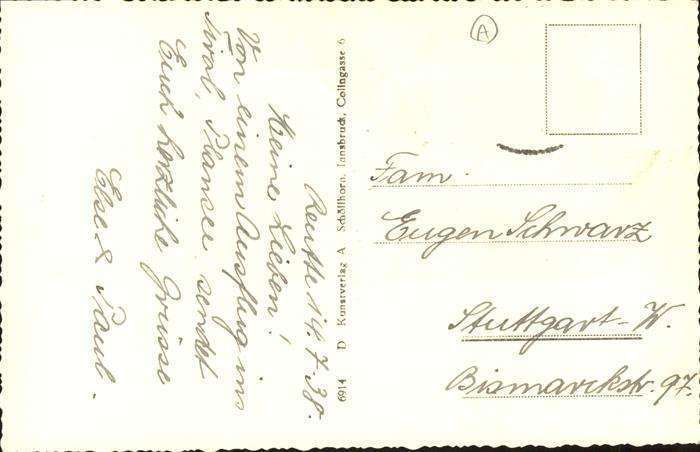 Reutte 14.7.38.
Meine Lieben!
Von einem Ausflug ins
Tirol, Plansee sendet
Euch herzliche Grüsse
Else & Paul.
6914 D Kunstverlag A Schöllhorn, Innsbruck, Colingasse 6
A
Fam.
Eugen Schwarz
Stuttgart-W.
Bismarckstr. 97.